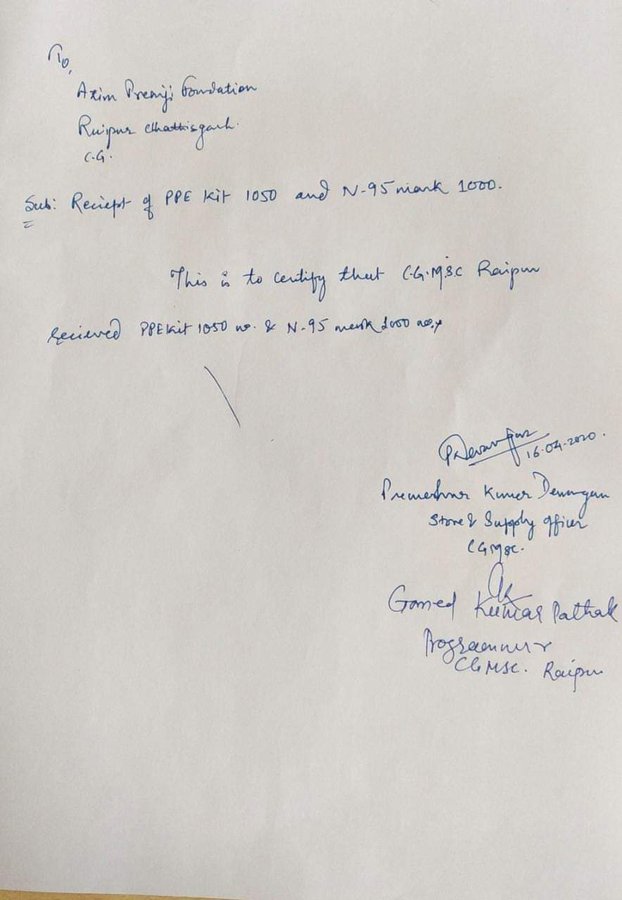 To,
Azim Premji Foundation
Raipur Chhattisgarh.
C.G.
Sub: Reciept of PPE Kit 1050 and N-95 mask 1000.
This is to certify that C.G.MSC Raipur
recieved PPE Kit 1050 no. & N-95 mask 1000 no.
PDewangan
16.04.2020.
Premeshwar Kumar Dewangan
Store & Supply officer
CGMSC.
Kumar Pathak
Programmer
CGMSC. Raipur